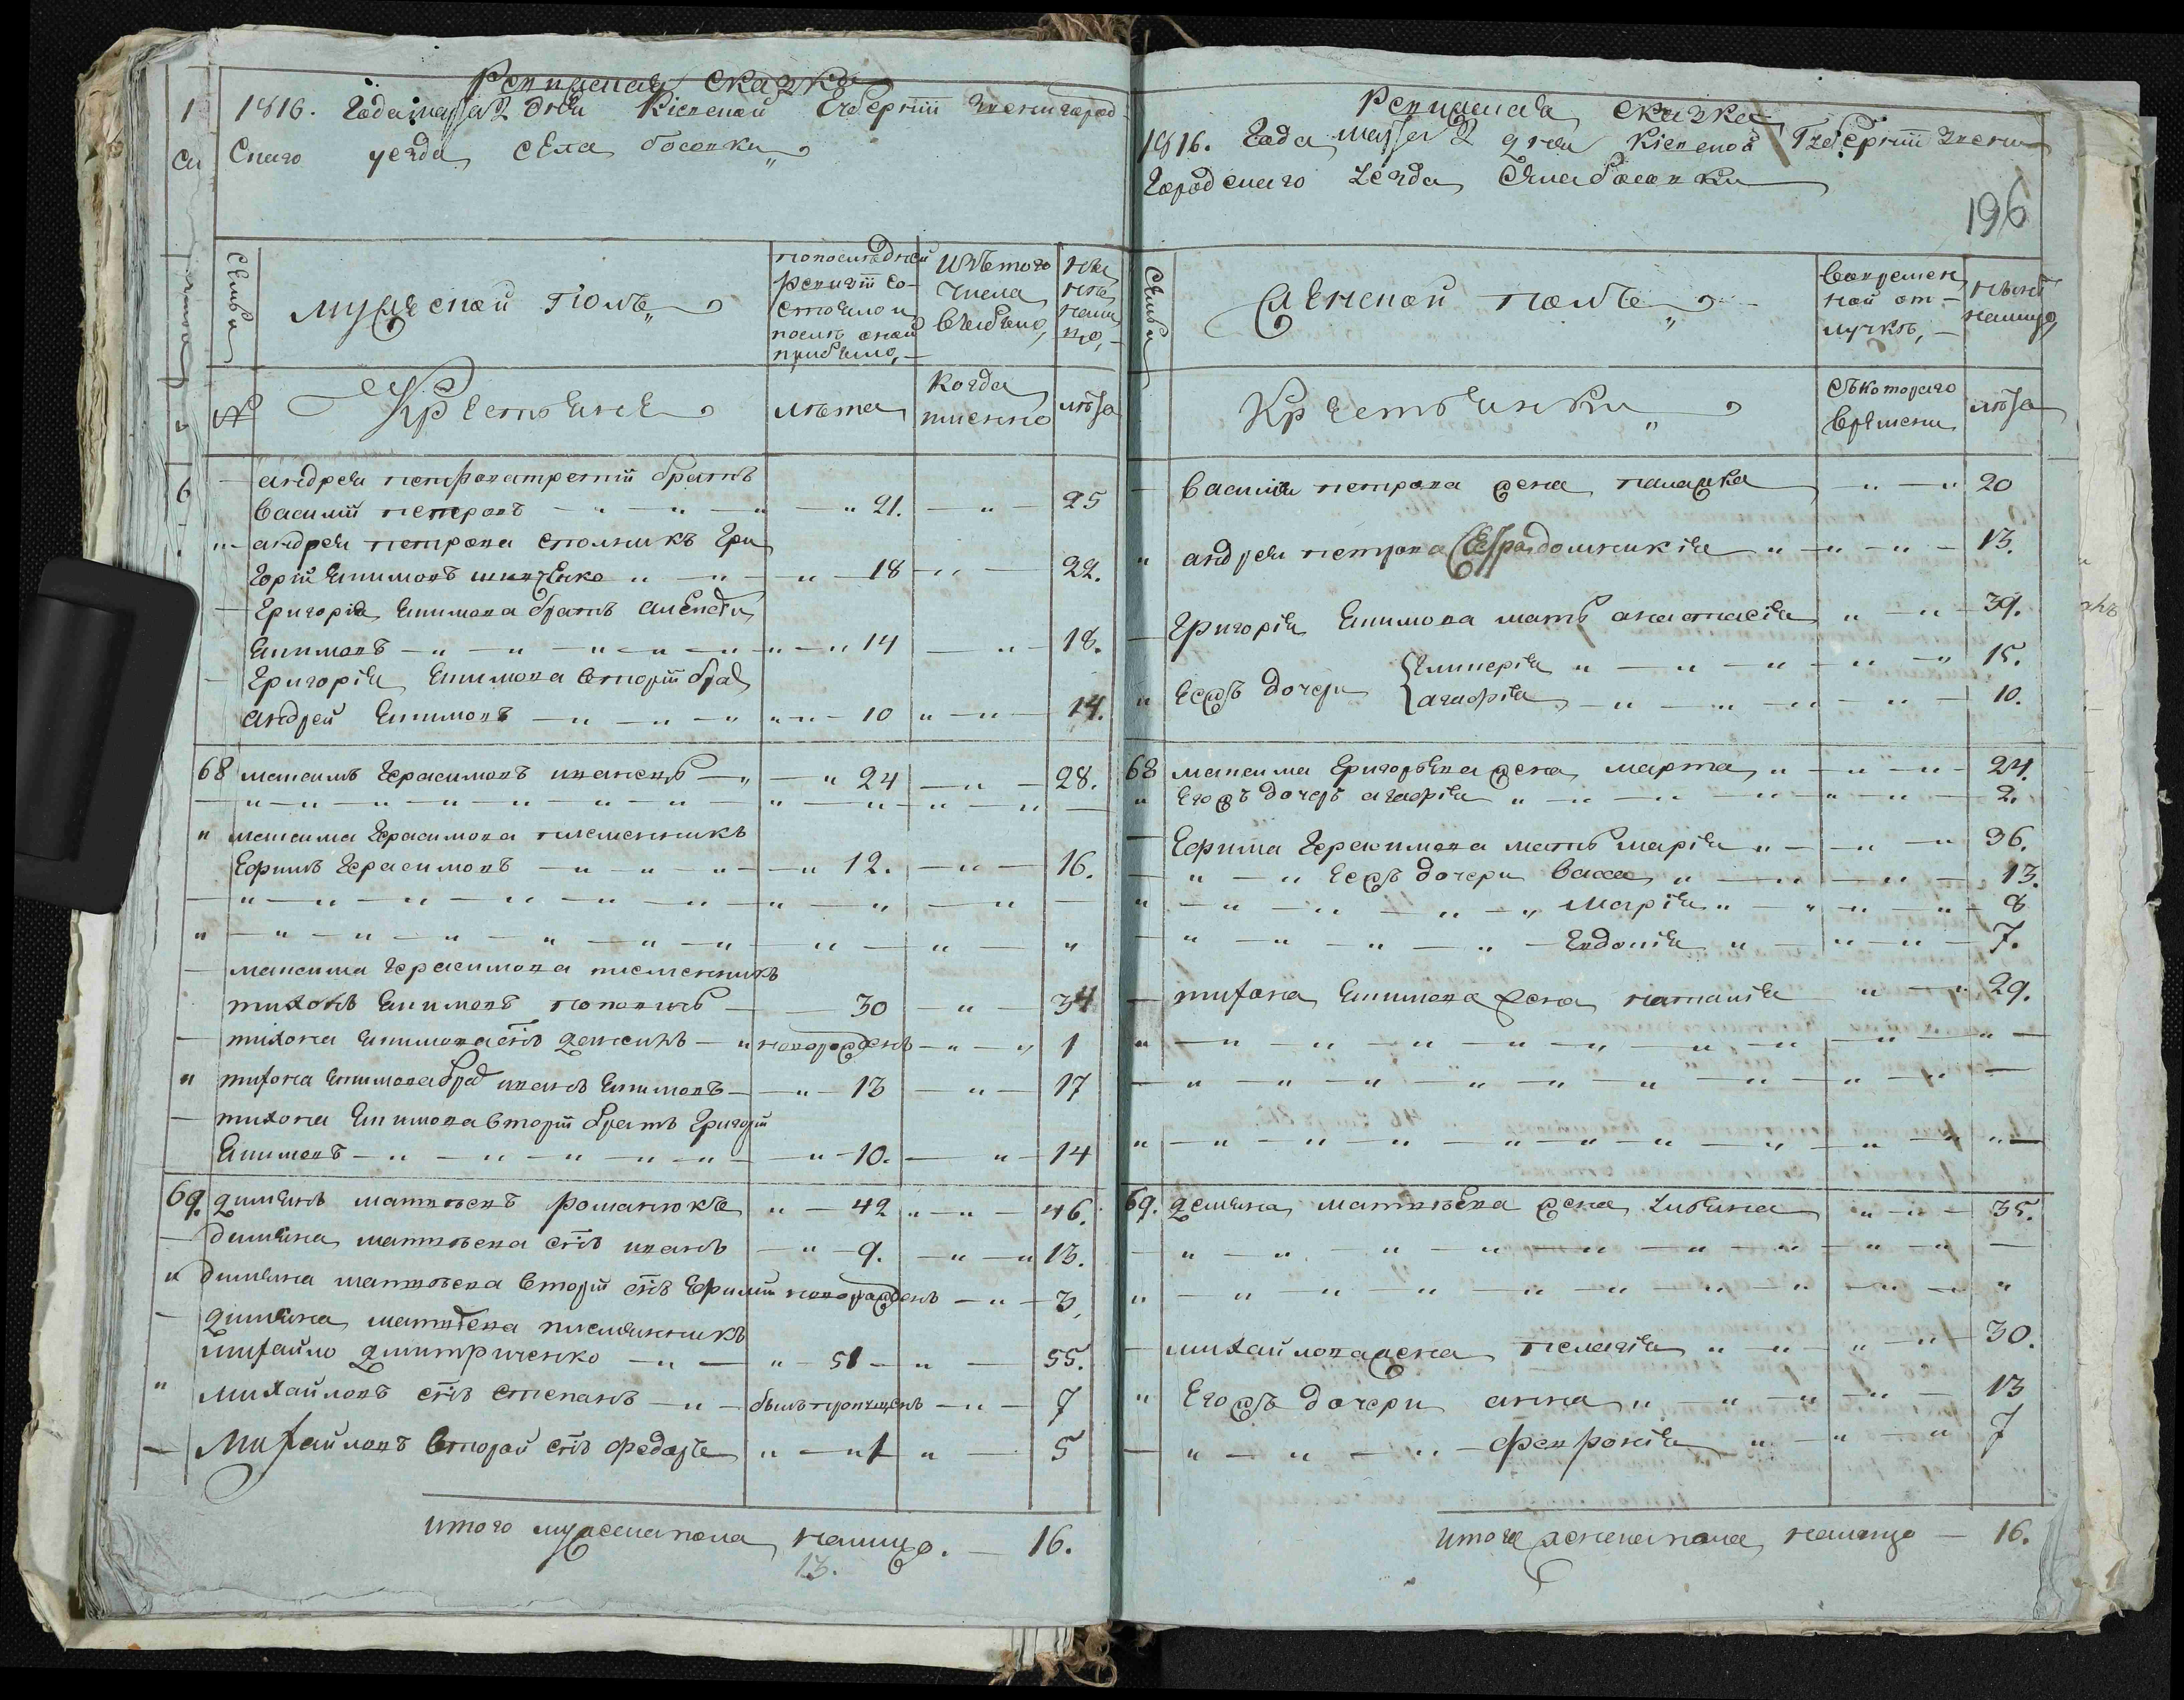 Ревизская сказка
1816. Года марта 2 дня Кіевской Губерніи Звенигород
скаго уезда села босовки
семьи
мужеской полъ
попоследней
ревизіи со-
стояло и
послѣ оной
прибыло,
Изъ того
числа
выбыло,
ны
нѣ
нали
цо,
№
Крестьяне
лѣта
когда
именно
лѣта
андрея петрова третій братъ
василій петровъ 21. 25
андрея петрова Гри
горій Якимовъ 18 22.
Григорія Якимова братъ Алексѣй
Якимовъ 14 18.
Григорія Якимова вторій бра
андрей Якимовъ 10 14.
68 максимъ Герасимовъ 24 28.
максима Герасимова племенникъ
Ефимъ Герасимовъ 12. 16.
максима Герасимова племенникъ
тихонъ Якимовъ поповичъ 30 34
тихона Якимова снъ новорожденъ 1
тихона Якимова бра иванъ Якимовъ 13 17
тихона Якимова вторій братъ Григорій
Якимовъ 10. 14
69. димянъ матвѣевъ романюкъ 42 46.
димяна матвѣева снъ иванъ 9. 13.
димяна матвѣева вторій снъ Ефимій новорожденъ 3,
димяна матвѣева племянникъ
михайло дмитриченко 51 55.
михайловъ снъ степанъ былъ пропущенъ 7
Михайловъ второй снъ федоръ 1 5
итого мужеска пола налицо. 16.
13.
Ревизская сказка
1816. Года марта 2 дня Кіевской Губерніи Звени
городскаго уезда села босовки
196
семьи
Женской полъ
вовремен
ной от-
лучкѣ,
нынѣ
налицо,
Крестьянки
съкотораго
времени
лѣта
василія петрова жена палажка 20
андрея петрова 13.
Григорія Якимова мать анастасія 39.
Еежъ дочери 15.
агафія 10.
68 максима Григорьева жена марта 24.
Егожъ дочеръ агафія 2.
Ефима Герасимова мать марія 36.
Еежъ дочери васса 13.
Марія 8
Евдокія 7.
тихона Якимова жена наталія 29.
69. демяна матвѣева жена уліяна 35.
михайлова жена пелагія 30.
Егожъ дочери анна 13
февронія 7
итого женска пола налицо 16.